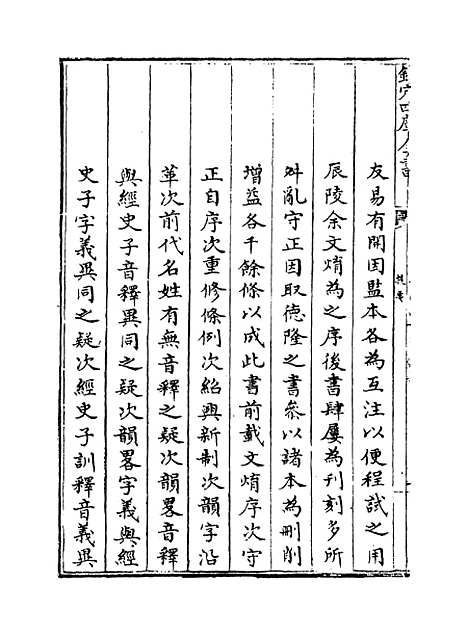 欽定四庫全書
提要
友易有開因監本各為互注以便程試之用
辰陵余文焴為之序後書肆屢為刊刻多所
舛亂守正因取德隆之書參以諸本為刪削
增益各千餘條以成此書前載文焴序次守
正自序次重修條例次紹興新制次韻字沿
革次前代名姓有無音釋之疑次韻畧音釋
與經史子音釋異同之疑次韻畧字義與經
史子字義異同之疑次經史子訓釋音義異